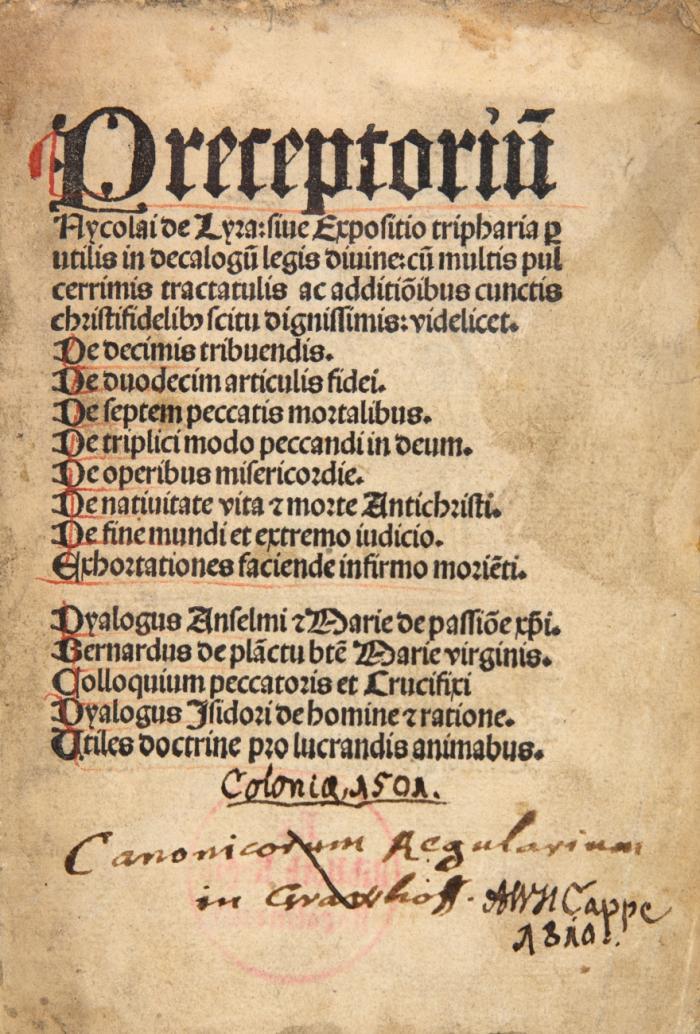 Preceptoriū
Nycolai de Lyra: siue Expositio tripharia ꝑ
utilis in decalogū legis diuine: cū multis pul
cerrimis tractatulis ac additiōibus cunctis
christifidelibꝰ scitu dignissimis: videlicet.
De decimis tribuendis.
De duodecim articulis fidei.
De septem peccatis mortalibus.
De triplici modo peccandi in deum.
De operibus misericordie.
De natiuitate vita ⁊ morte Antichristi.
De fine mundi et extremo iudicio.
Exhortationes faciende infirmo moriēti.
Dyalogus Anselmi ⁊ Marie de passiōe xp̄i.
Bernardus de plāctu btē Marie virginis.
Colloquium peccatoris et Crucifixi
Dyalogus Isidori de homine ⁊ ratione.
Utiles doctrine pro lucrandis animabus.
Coloniæ, 1501.
Canonicorum Regularium
in
AWH Cappe
1810.